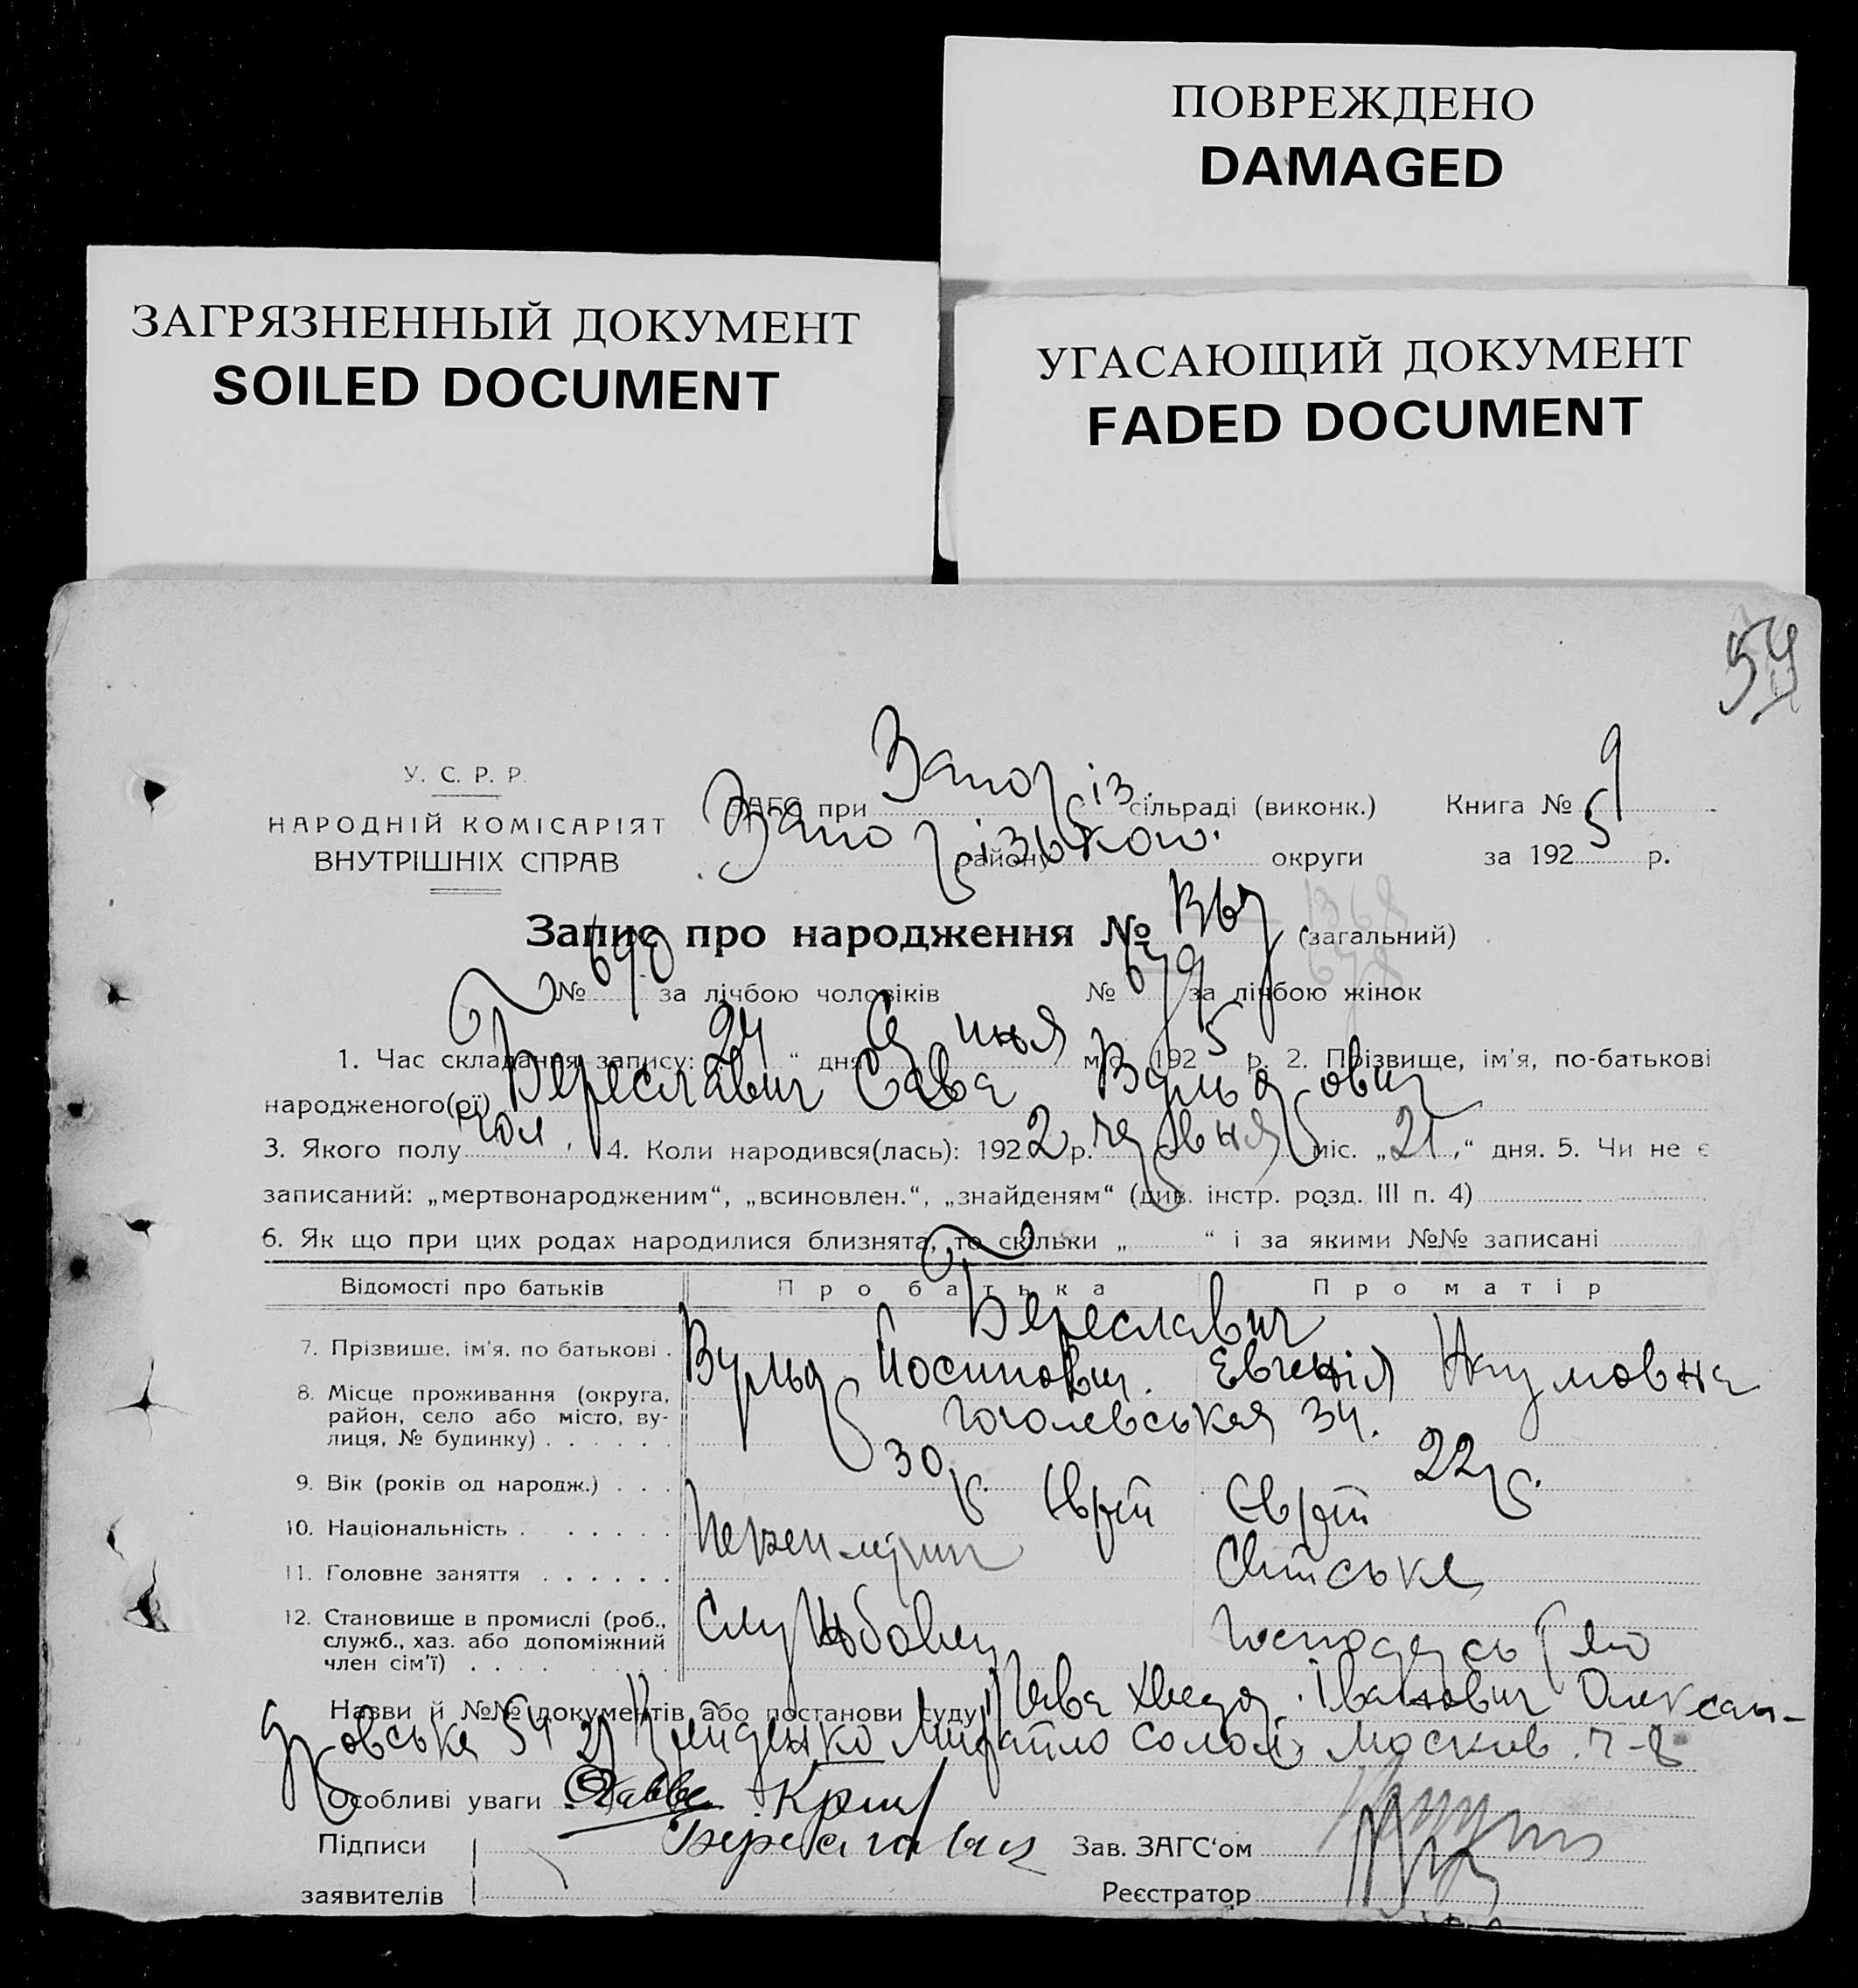 ПОВРЕЖДЕНО
DAMAGED
ЗАГРЯЗНЕННЫЙ ДОКУМЕНТ
SOILED DOCUMENT
УГАСАЮЩИЙ ДОКУМЕНТ
FADED DOCUMENT
У. С. Р. Р.
НАРОДНІЙ КОМІСАРІЯТ
ВНУТРІШНІХ СПРАВ
ЗАГС при Запоріз. сільраді (виконк.) Книга № 9
району Запорізькою округи за 1925 р.
Запис про народження № (загальний) 1368
№ 690 за лічбою чоловіків № 679 за лічбою жінок 678
1. Час складання запису: „24“ дня м. 1925 р. 2. Прізвище, ім'я, по-батькові
народженого(ої) Береславич Сава Вульфович
3. Якого полу чол. 4. Коли народився(лась): 1922 р. червня міс. „21“ дня. 5. Чи не є
записаний: „мертвонародженим“, „всиновлен.“, „знайденям“ (див. інстр. розд. III п. 4)
6. Як що при цих родах народилися близнята, то скільки „ “ і за якими №№ записані
Відомості про батьків Про батька Про матір
7. Прізвище, ім'я, по батькові . Береславич
Вульф Йосипович. Евгенія Наумовна
8. Місце проживання (округа, район, село або місто, вулиця, № будинку) . . . . . . Гоголевськая 34.
9. Вік (років од народж.) . . . 30 р. 22 р.
10. Національність . . . . . . Єврей Єврей
11. Головне заняття . . . . . .
12. Становище в промислі (роб., служб., хаз. або допоміжний член сім'ї) . . . . Службовец
Назви й №№ документів або постанови суду Іванович Олексан-
дровська 54 Михайло Москов.
Особливі уваги
Підписи
заявителів
Береславич
Зав. ЗАГС'ом
Реєстратор